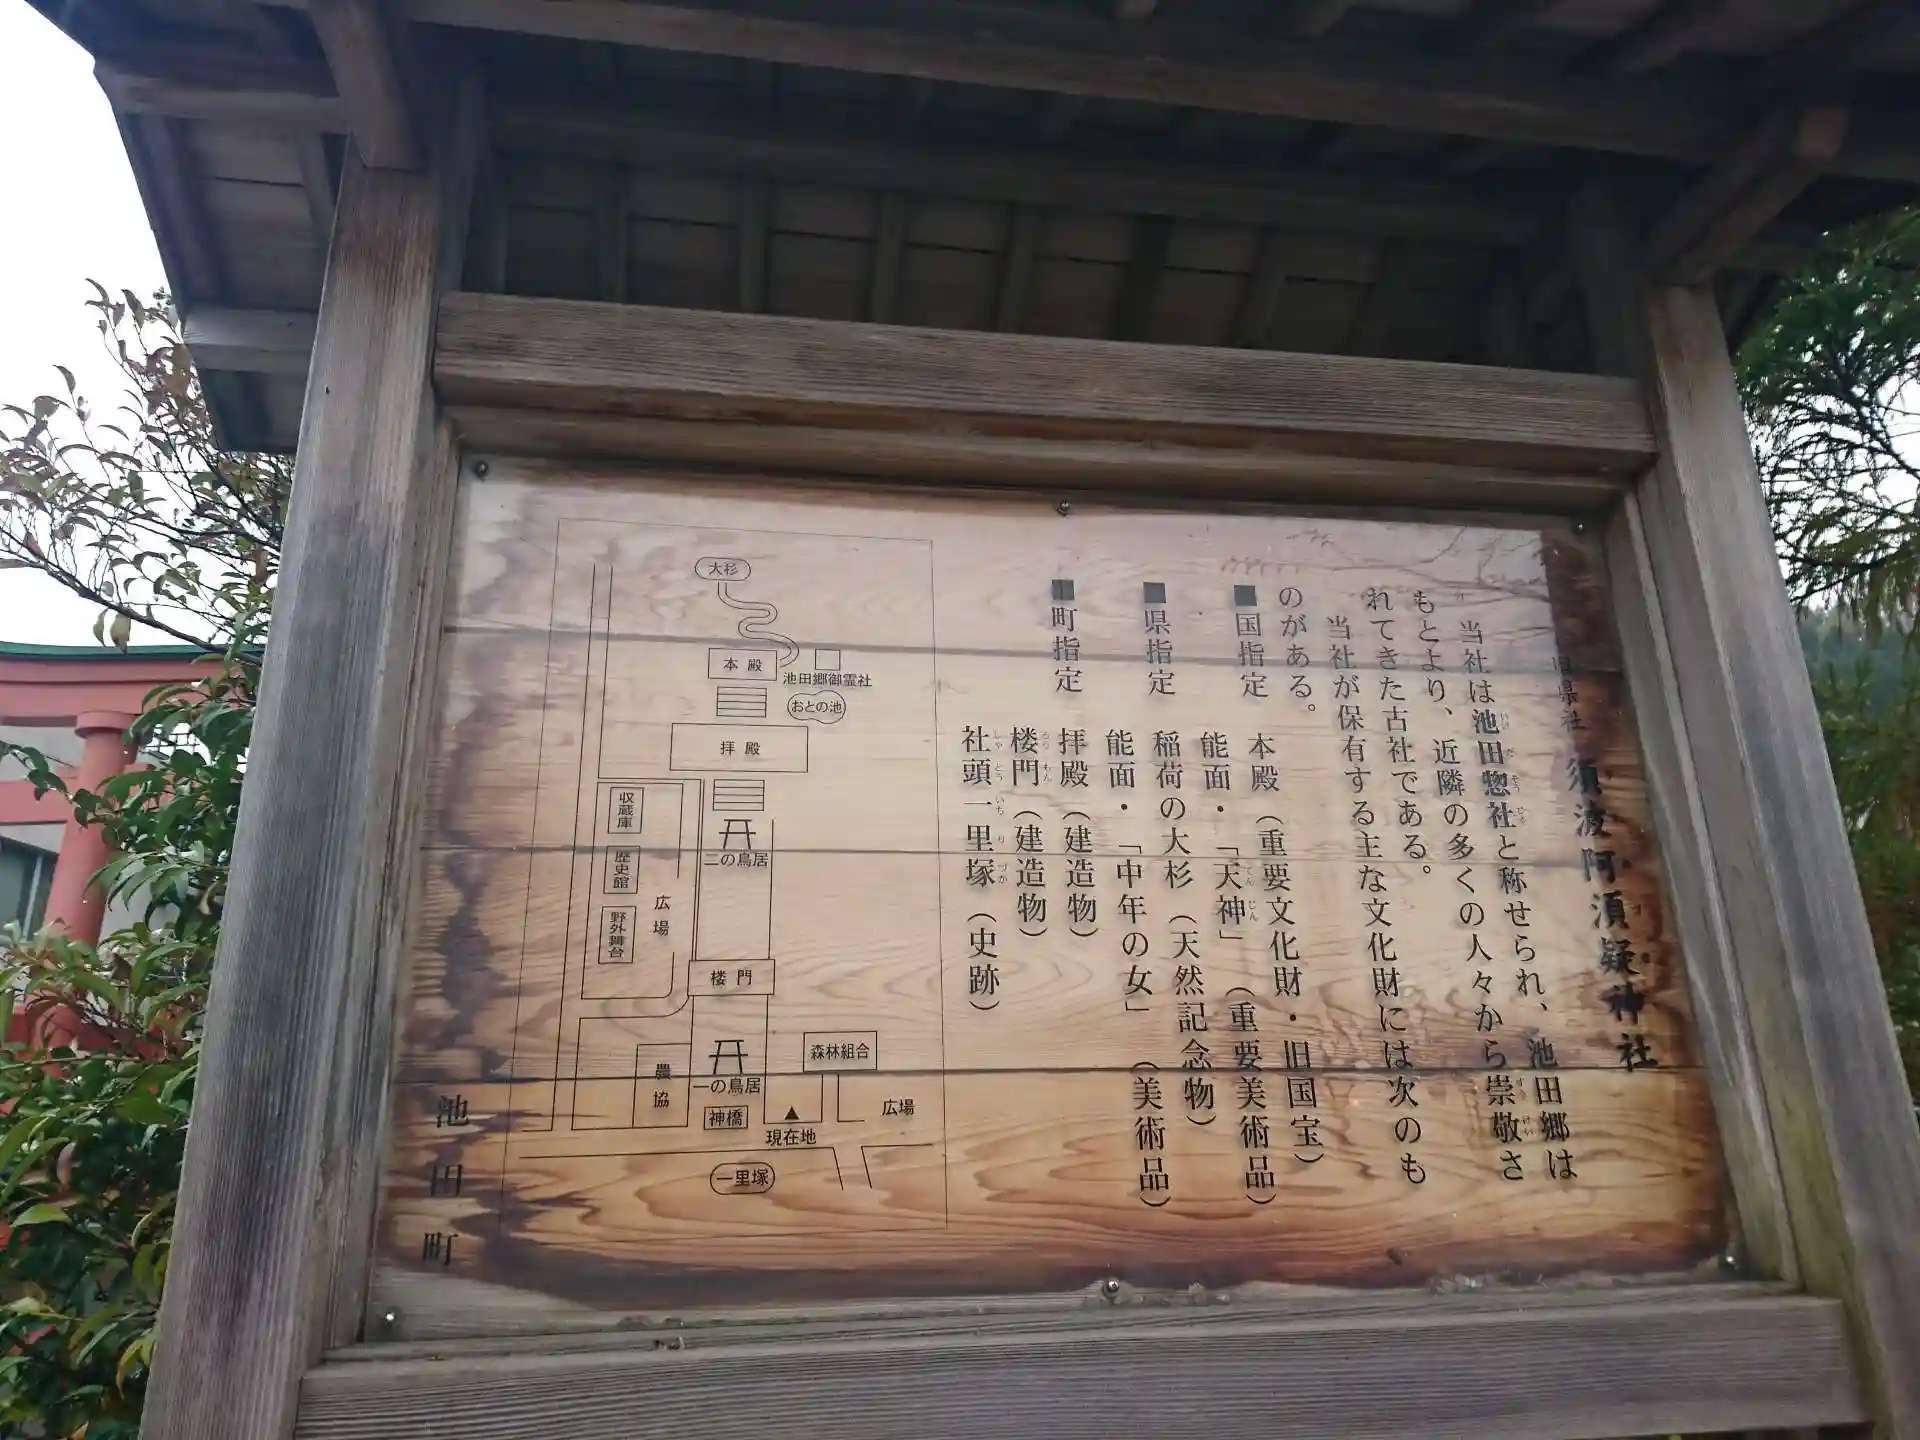 旧県社 須波阿須疑神社
当社は池田惣社と称せられ、池田郷は
もとより、近隣の多くの人々から崇敬さ
れてきた古社である。
当社が保有する主な文化財には次のも
のがある。
■国指定 本殿（重要文化財・旧国宝）
能面・「天神」（重要美術品）
■県指定 稲荷の大杉（天然記念物）
能面・「中年の女」（美術品）
■町指定 拝殿（建造物）
楼門（建造物）
社頭一里塚（史跡）
大杉
本殿
池田郷御霊社
おとの池
拝殿
収蔵庫
二の鳥居
歴史館
広場
野外舞台
楼門
森林組合
農協
一の鳥居
神橋
現在地
広場
一里塚
池田町